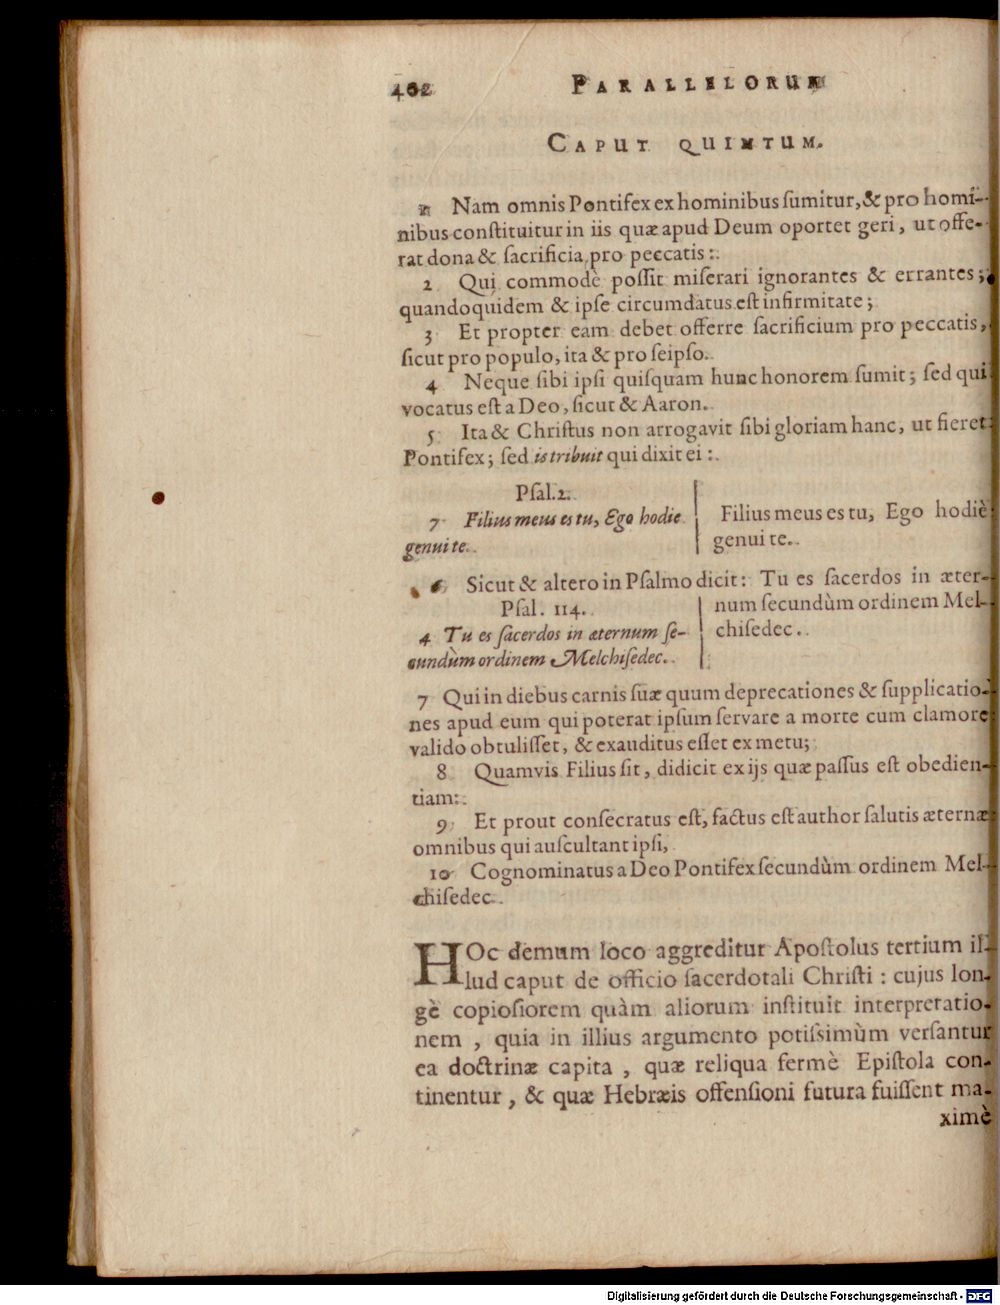 402 PARALLELORUM
CAPUT QUINTUM.
1 Nam omnis Pontifex ex hominibus ſumitur, & pro homi-
nibus conſtituitur in iis quæ apud Deum oportet geri, ut offe-
rat dona & ſacrificia pro peccatis:
2 Qui commodè poſſit miſerari ignorantes & errantes;
quandoquidem & ipſe circumdatus eſt infirmitate;
3 Et propter eam debet offerre ſacrificium pro peccatis,
ſicut pro populo, ita & pro ſeipſo.
4 Neque ſibi ipſi quiſquam hunc honorem ſumit; ſed qui
vocatus eſt a Deo, ſicut & Aaron.
5 Ita & Chriſtus non arrogavit ſibi gloriam hanc, ut fieret
Pontifex; ſed is tribuit qui dixit ei:
Pſal. 2.
7 Filius meus es tu, Ego hodie
genui te.
Filius meus es tu, Ego hodiè
genui te.
6 Sicut & altero in Pſalmo dicit: Tu es ſacerdos in æter-
num ſecundùm ordinem Mel-
chiſedec.
Pſal. 114.
4 Tu es ſacerdos in æternum ſe-
cundùm ordinem Melchiſedec.
7 Qui in diebus carnis ſuæ quum deprecationes & ſupplicatio-
nes apud eum qui poterat ipſum ſervare a morte cum clamore
valido obtuliſſet, & exauditus eſſet ex metu;
8 Quamvis Filius ſit, didicit ex ijs quæ paſſus eſt obedien-
tiam:
9 Et prout conſecratus eſt, factus eſt author ſalutis æternæ
omnibus qui auſcultant ipſi,
10 Cognominatus a Deo Pontifex ſecundùm ordinem Mel-
chiſedec.
HOc demum loco aggreditur Apoſtolus tertium il-
lud caput de officio ſacerdotali Chriſti: cujus lon-
gè copioſiorem quàm aliorum inſtituit interpretatio-
nem, quia in illius argumento potiſsimùm verſantur
ea doctrinæ capita, quæ reliqua fermè Epiſtola con-
tinentur, & quæ Hebræis offenſioni futura fuiſſent ma-
ximè
Digitalisierung gefördert durch die Deutsche Forschungsgemeinschaft - DFG